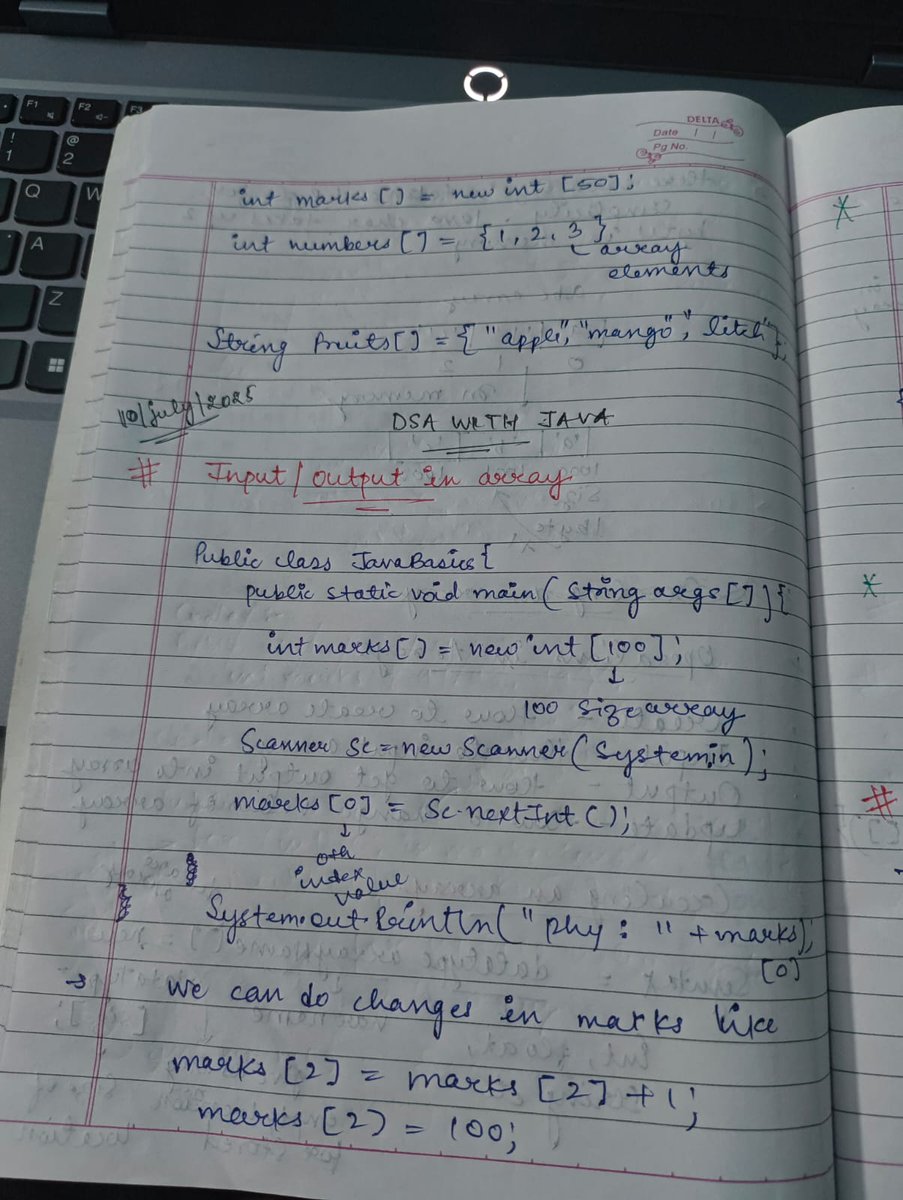 DELTA
Date / /
Pg No.
int marks [] = new int [50];
int numbers [] = {1, 2, 3}
array
elements
String fruits[] = {"apple", "mango", "litch"};
10/july/2025
DSA WITH JAVA
# Input/output in array
Public class JavaBasics{
public static void main( string args []){
int marks [] = new int [100];
↓
100 size array
Scanner Sc = new Scanner( System.in);
marks [0] = Sc.nextInt ();
↓
0th
index
value
System.out.Println( "phy : " + marks);
[0]
→ we can do changes in marks like
marks [2] = marks [2] + 1;
marks [2) = 100;
F1
F2
F3
!
1
@
2
Q
W
A
Z
*
*
#